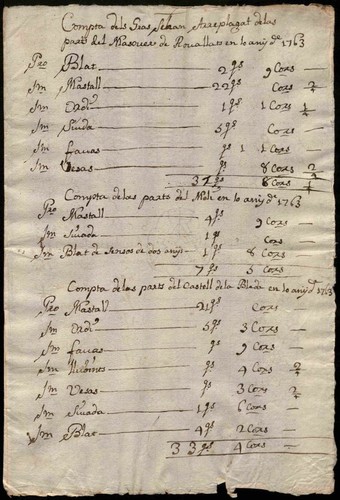 Compta dels Gras Seran Arreplagat de las
parts del Masover de Rovallats en lo any de 1763
Pro Blat 2 qs 9 Cors
Itm Mastall 22 qs Cors 2/4
Itm Ordi 1 qs 1 Cors 1/4
Itm Sivada 5 qs Cors
Itm favas qs 1 1 Cors
Itm Vesas qs 8 Cors 2/4
31 qs 8 Cors
Compta de las parts del Molí en lo any de 1763
Pro Mastall 4 qs 9 Cors
Itm Sivada 1 qs Cors
Itm Blat de Sensos de dos anys 1 qs 8 Cors
7 qs 5 Cors
Compta de las parts del Castell de la en lo any de 1763
Pro Mastall 21 qs Cors
Itm Ordi 5 qs 3 Cors
Itm favas qs 9 Cors
Itm qs 4 Cors 2/4
Itm Vesas qs 3 Cors 2/4
Itm Sivada 1 qs 6 Cors
Itm Blat 4 qs 2 Cors
33 qs 4 Cors